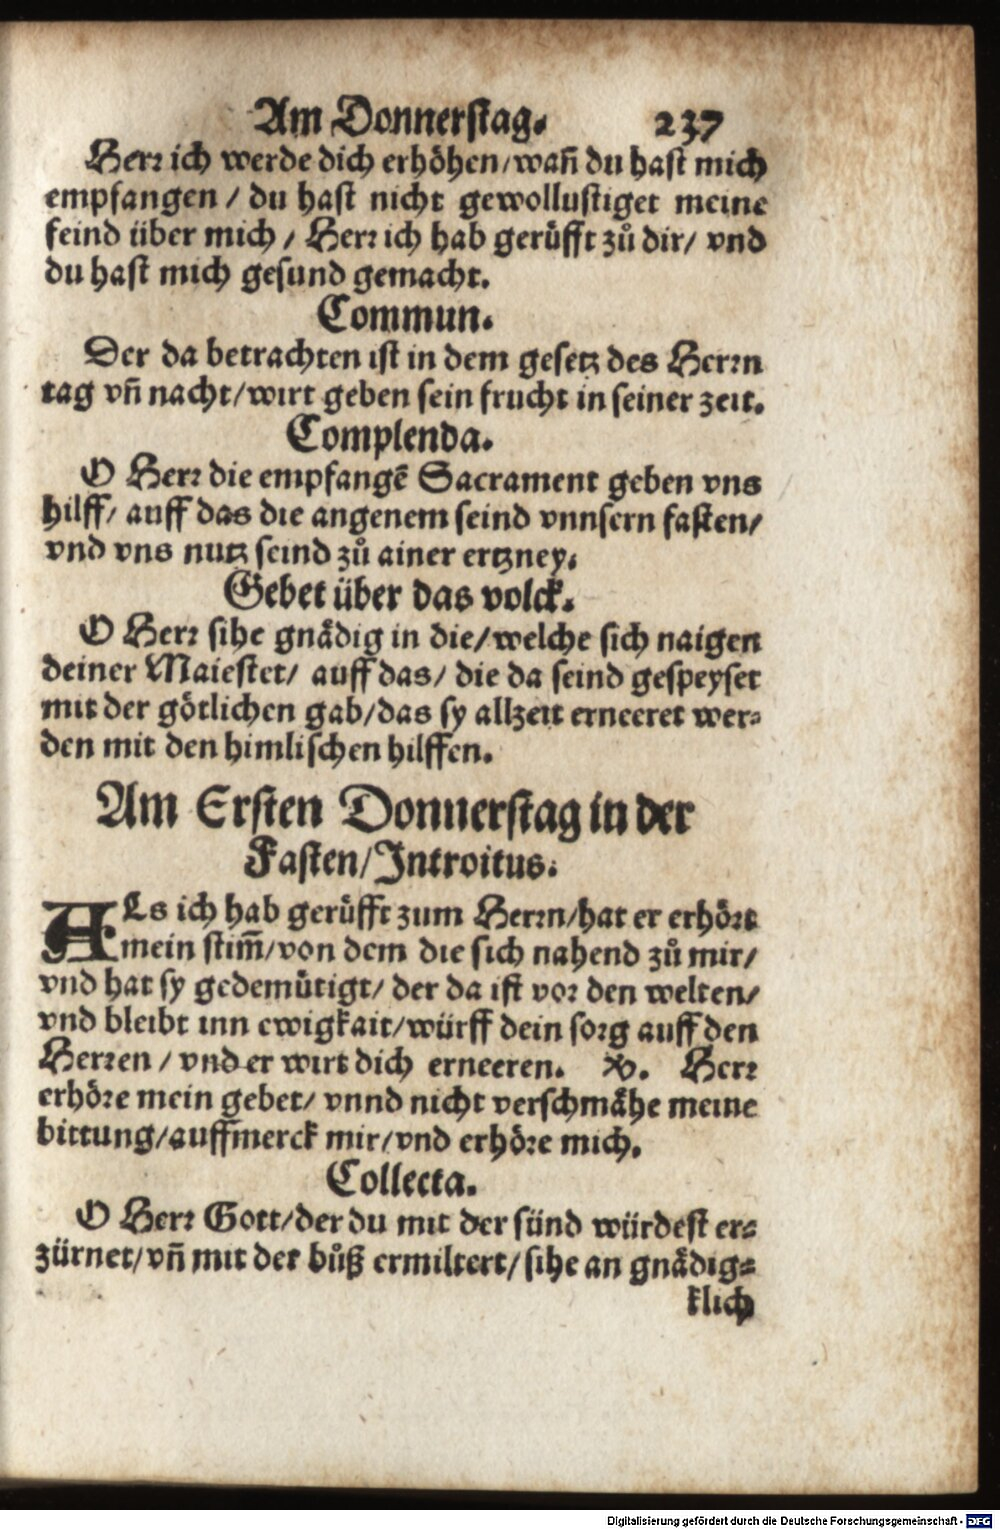 Am Donnerstag. 237
Herr ich werde dich erhöhen/wañ du hast mich
empfangen / du hast nicht gewollustiget meine
feind über mich / Herr ich hab gerüfft zů dir/ vnd
du hast mich gesund gemacht.
Commun.
Der da betrachten ist in dem gesetz des Herrn
tag vñ nacht/wirt geben sein frucht in seiner zeit.
Complenda.
O Herr die empfangẽ Sacrament geben vns
hilff/ auff das die angenem seind vnnsern fasten/
vnd vns nutz seind zů ainer ertzney.
Gebet über das volck.
O Herr sihe gnädig in die/welche sich naigen
deiner Maiestet/ auff das/ die da seind gespeyset
mit der götlichen gab/das sy allzeit erneeret wer-
den mit den himlischen hilffen.
Am Ersten Donnerstag in der
Fasten/Introitus.
ALs ich hab gerüfft zum Herrn/hat er erhört
mein stim̃/von dem die sich nahend zů mir/
vnd hat sy gedemütigt/ der da ist vor den welten/
vnd bleibt inn ewigkait/würff dein sorg auff den
Herren / vnd er wirt dich erneeren. ℣. Herr
erhöre mein gebet/ vnnd nicht verschmähe meine
bittung/auffmerck mir/vnd erhöre mich.
Collecta.
O Herr Gott/der du mit der sünd würdest er-
zürnet/vñ mit der bůß ermiltert/sihe an gnädig-
klich
Digitalisierung gefördert durch die Deutsche Forschungsgemeinschaft - DFG